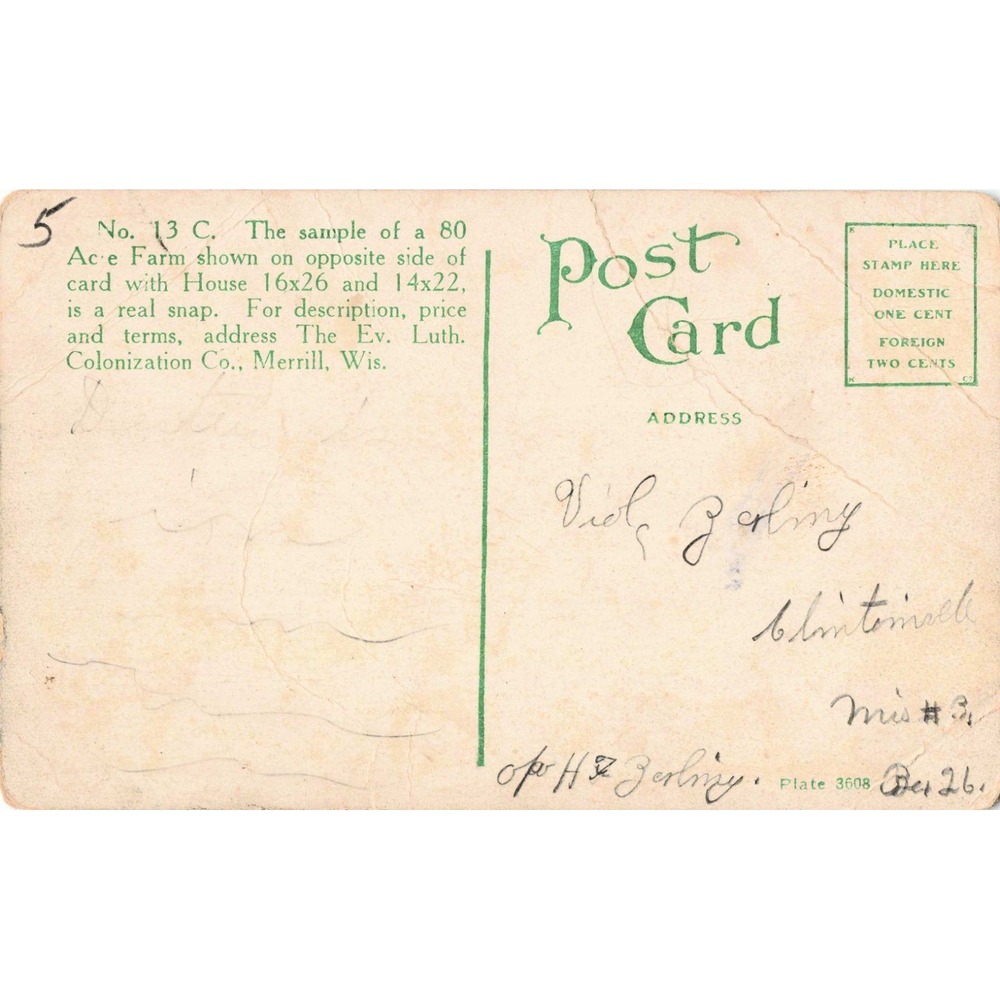 5
No. 13 C. The sample of a 80
Ac e Farm shown on opposite side of
card with House 16x26 and 14x22,
is a real snap. For description, price
and terms, address The Ev. Luth.
Colonization Co., Merrill, Wis.
Post
Card
PLACE
STAMP HERE
DOMESTIC
ONE CENT
FOREIGN
TWO CENTS
ADDRESS
Viola Zerling
Clintonville
Wis # 3.
H Zerling.
Plate 3608
26.